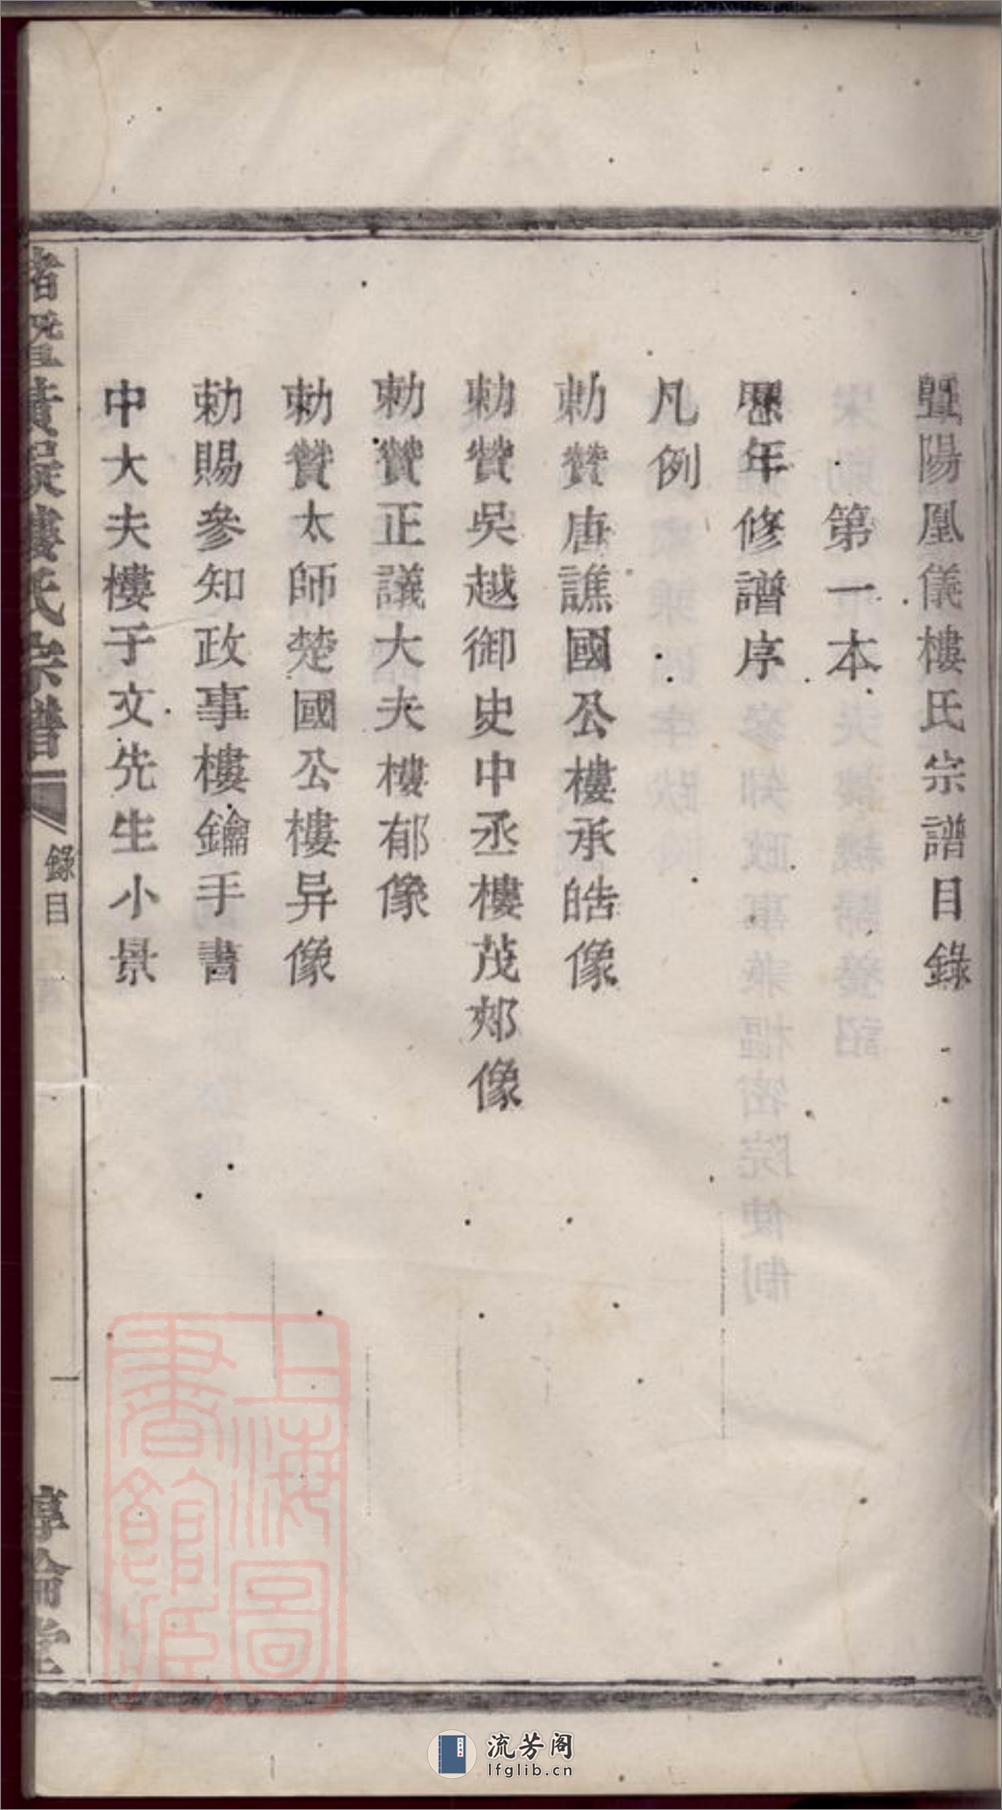 暨陽鳳儀樓氏宗譜目錄
第一本
歷年修譜序
凡例
勅贊唐譙國公樓承皓像
勅贊吳越御史中丞樓茂郟像
勅贊正議大夫樓郁像
勅贊太師楚國公樓异像
勅賜參知政事樓鑰手書
中大夫樓子文先生小景
樓氏宗譜
目錄
一
惇倫堂
上海圖書館藏
流芳阁
lfglib.cn